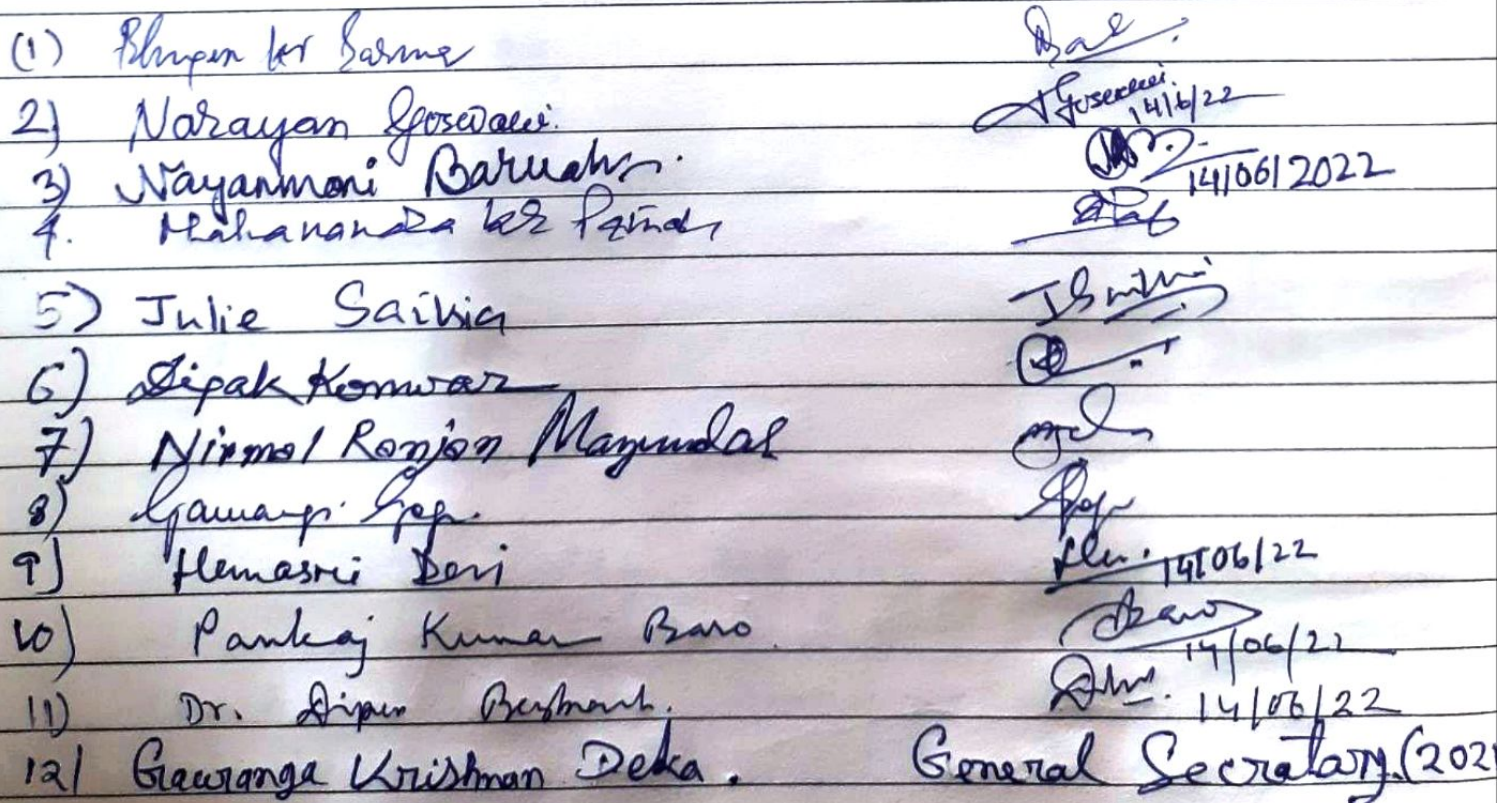 (1) Bhupen kr Sarma
2) Narayan Goswami. Goswami. 14/6/22
3) Nayanmoni Baruah. 14/06/2022
4. Mahananda kr
5) Julie Saikia JSaikia
6) Dipak Konwar
7) Nirmol Ronjon Mazumdar
8) Gogoi
9) Hemasri Devi 14/06/22
10) Pankaj Kumar Baro 14/06/22
11) Dr. Dipen 14/06/22
12) Gauranga Krishnan Deka. General Secratary.(202